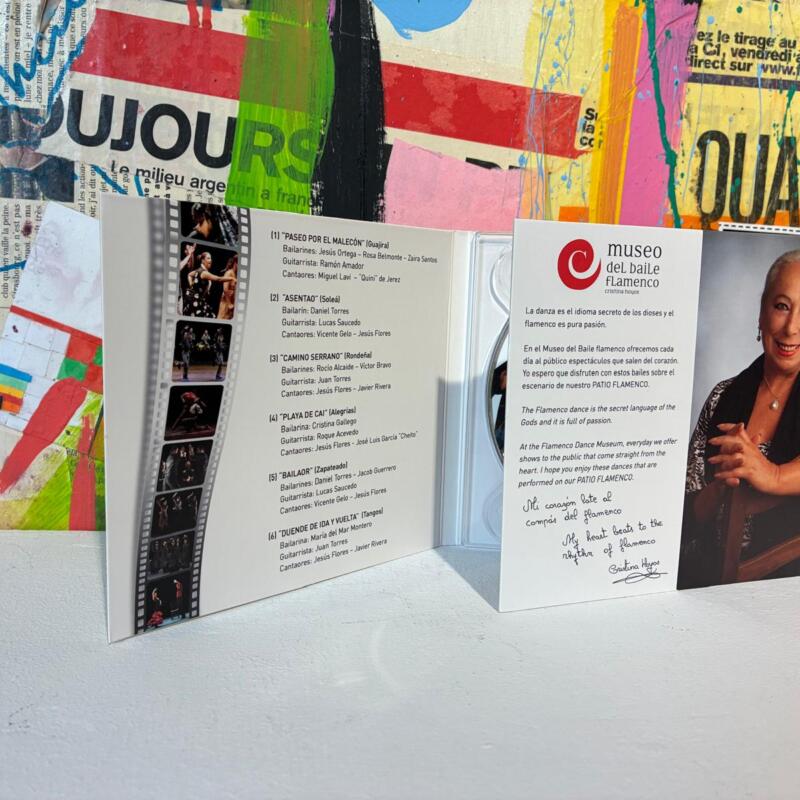 OUJOURS
Le milieu argentin a franc
ez le tirage au
a C1, vendredi à
direct sur www.f
QUA
(1) "PASEO POR EL MALECÓN" (Guajira)
Bailarines: Jesús Ortega – Rosa Belmonte – Zaira Santos
Guitarrista: Ramón Amador
Cantaores: Miguel Lavi – "Quini" de Jerez
(2) "ASENTAO" (Soleá)
Bailarín: Daniel Torres
Guitarrista: Lucas Saucedo
Cantaores: Vicente Gelo – Jesús Flores
(3) "CAMINO SERRANO" (Rondeña)
Bailarines: Rocío Alcaide – Víctor Bravo
Guitarrista: Juan Torres
Cantaores: Jesús Flores – Javier Rivera
(4) "PLAYA DE CAI" (Alegrías)
Bailarina: Cristina Gallego
Guitarrista: Roque Acevedo
Cantaores: Jesús Flores – José Luis García "Cheito"
(5) "BAILAOR" (Zapateado)
Bailarines: Daniel Torres – Jacob Guerrero
Guitarrista: Lucas Saucedo
Cantaores: Vicente Gelo – Jesús Flores
(6) "DUENDE DE IDA Y VUELTA" (Tangos)
Bailarina: María del Mar Montero
Guitarrista: Juan Torres
Cantaores: Jesús Flores – Javier Rivera
museo
del baile
flamenco
cristina hoyos
La danza es el idioma secreto de los dioses y el
flamenco es pura pasión.
En el Museo del Baile flamenco ofrecemos cada
día al público espectáculos que salen del corazón.
Yo espero que disfruten con estos bailes sobre el
escenario de nuestro PATIO FLAMENCO.
The Flamenco dance is the secret language of the
Gods and it is full of passion.
At the Flamenco Dance Museum, everyday we offer
shows to the public that come straight from the
heart. I hope you enjoy these dances that are
performed on our PATIO FLAMENCO.
Mi corazón late al
compás del flamenco
My heart beats to the
rhythm of flamenco
Cristina Hoyos